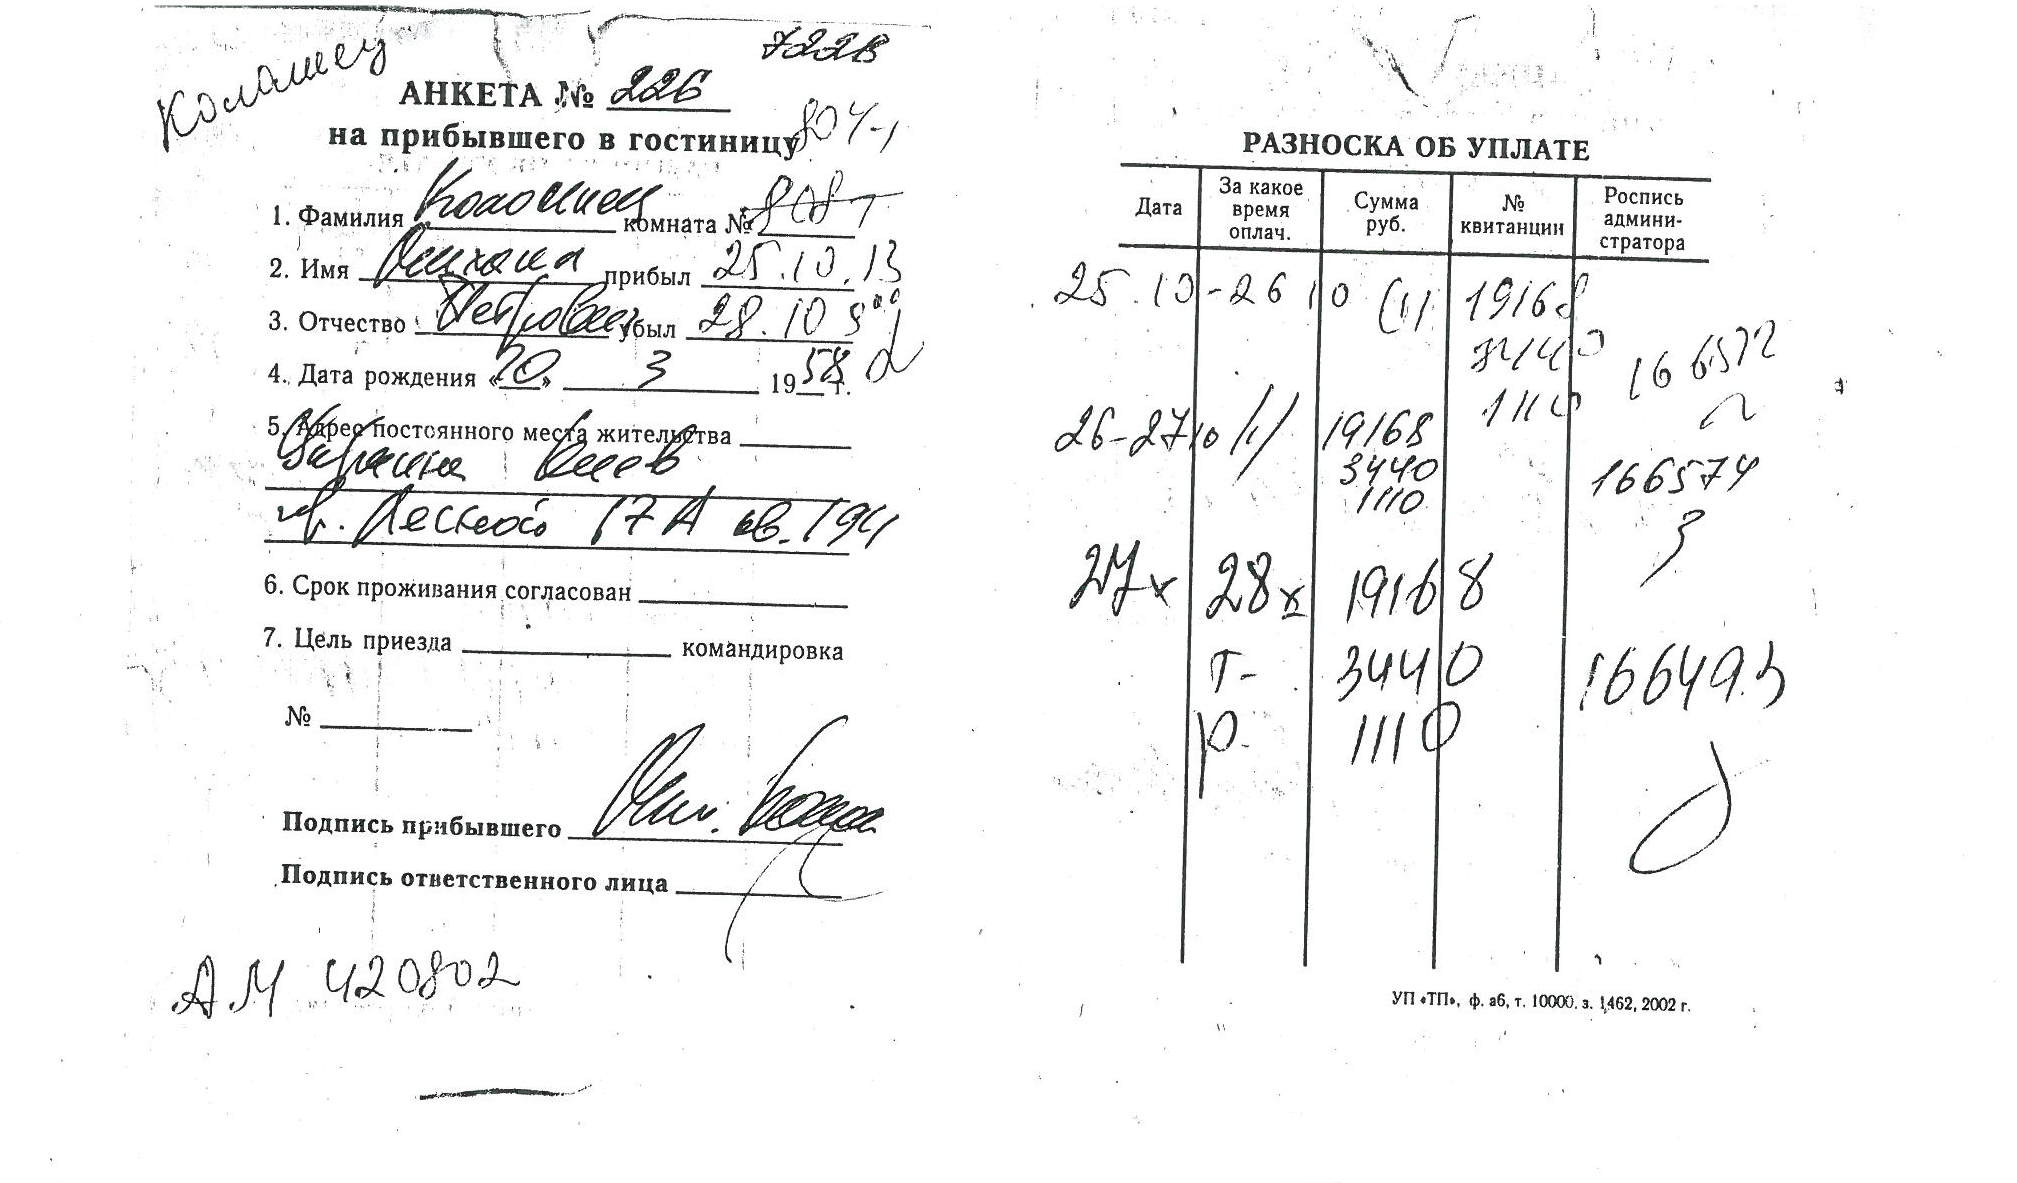 Коломиец
722в
АНКЕТА № 226
на прибывшего в гостиницу
804-1
1. Фамилия Коломиец комната № 808т
2. Имя Михаил прибыл 25.10.13
3. Отчество Петрович убыл 28.10 9⁰⁰
4. Дата рождения «20» 3 1958 г.
5. Адрес постоянного места жительства
Украина Киев
пр. Лесной 17А кв. 194
6. Срок проживания согласован
7. Цель приезда командировка
№
Подпись прибывшего
Подпись ответственного лица
АМ 420802
РАЗНОСКА ОБ УПЛАТЕ
Дата За какое время оплач. Сумма руб. № квитанции Роспись администратора
25.10-26 10 (1) 19168
3440 166572
1110
26-27 10 (1) 19168
3440 166574
1110
27x 28x 19168
т- 3440 166493
р- 1110
УП «ТП», ф. а6, т. 10000. з. 1462, 2002 г.